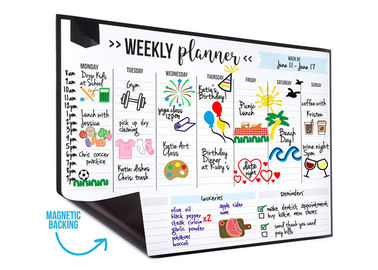 >> WEEKLY planner <<
WEEK OF
June 11 - June 17
MONDAY
TUESDAY
WEDNESDAY
THURSDAY
FRIDAY
SATURDAY
SUNDAY
8 am
9 am
10 am
11 am
12 pm
Drop Kids
at School
Lunch with
Jessica
Chris soccer
practice
Gym
pick up dry
cleaning
Katie: dishes
Chris: trash
yoga class
12pm
Katie
Art
Class
Katie's
Birthday!
Birthday
Dinner
at Rudy's
Picnic
Lunch
date
night
Beach
Day!
coffee with
Kristen
wine night
Gym
Groceries
olive oil
black pepper
steak
x2
garlic powder
potatoes
broccoli
apple cider
wine
Reminders
make dentist appointment
buy Katie new shoes
send thank you card
pay bills
MAGNETIC
BACKING